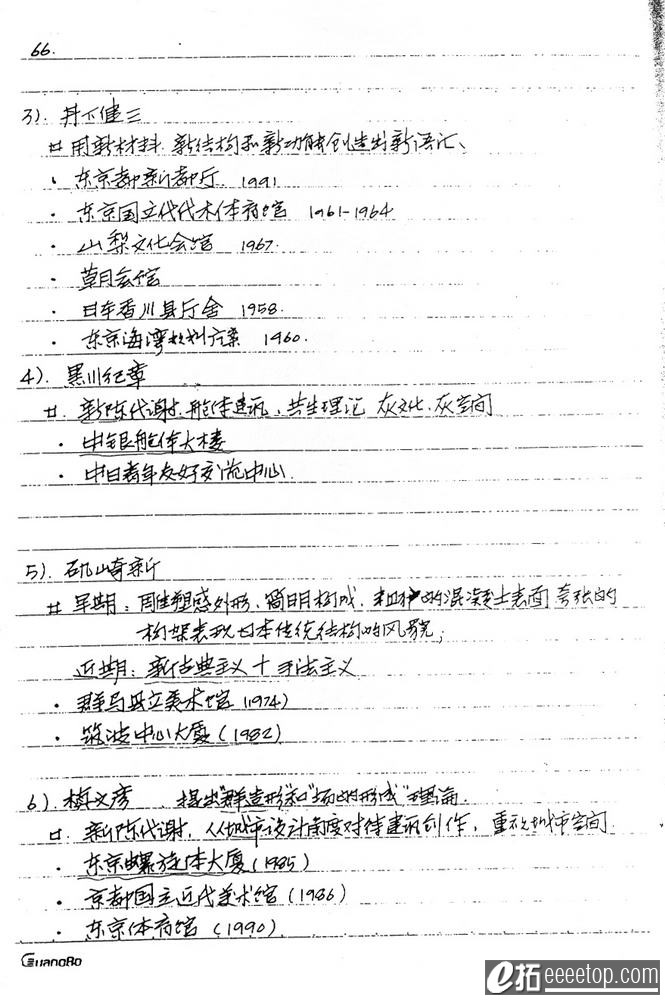 66.
3). 丹下健三
# 用新材料 新结构和新功能创造出新语汇、
· 东京都新都厅 1991
· 东京国立代代木体育馆 1961-1964
· 山梨文化会馆 1967.
· 草月会馆
· 日本香川县厅舍 1958.
· 东京海湾规划方案 1960.
4). 黑川纪章
#. 新陈代谢. 舱体建筑、共生理论 灰文化. 灰空间
· 中银舱体大楼
· 中日青年友好交流中心.
5). 矶崎新
# 早期: 周生塑感外形、简明构成、粗犷的混凝土表面 夸张的
构架表现日本传统结构的风貌;
近期: 新古典主义 + 手法主义
· 群马县立美术馆 (1974)
· 筑波中心大厦 (1982)
6). 槙文彦 . 提出“群造形”和“场的形成”理论.
#. 新陈代谢, 从城市设计角度对待建筑创作, 重视城市空间.
· 东京螺旋体大厦 (1985)
· 京都国立近代美术馆 (1986)
· 东京体育馆 (1990)
GuangBo
e拓 eeeetop.com